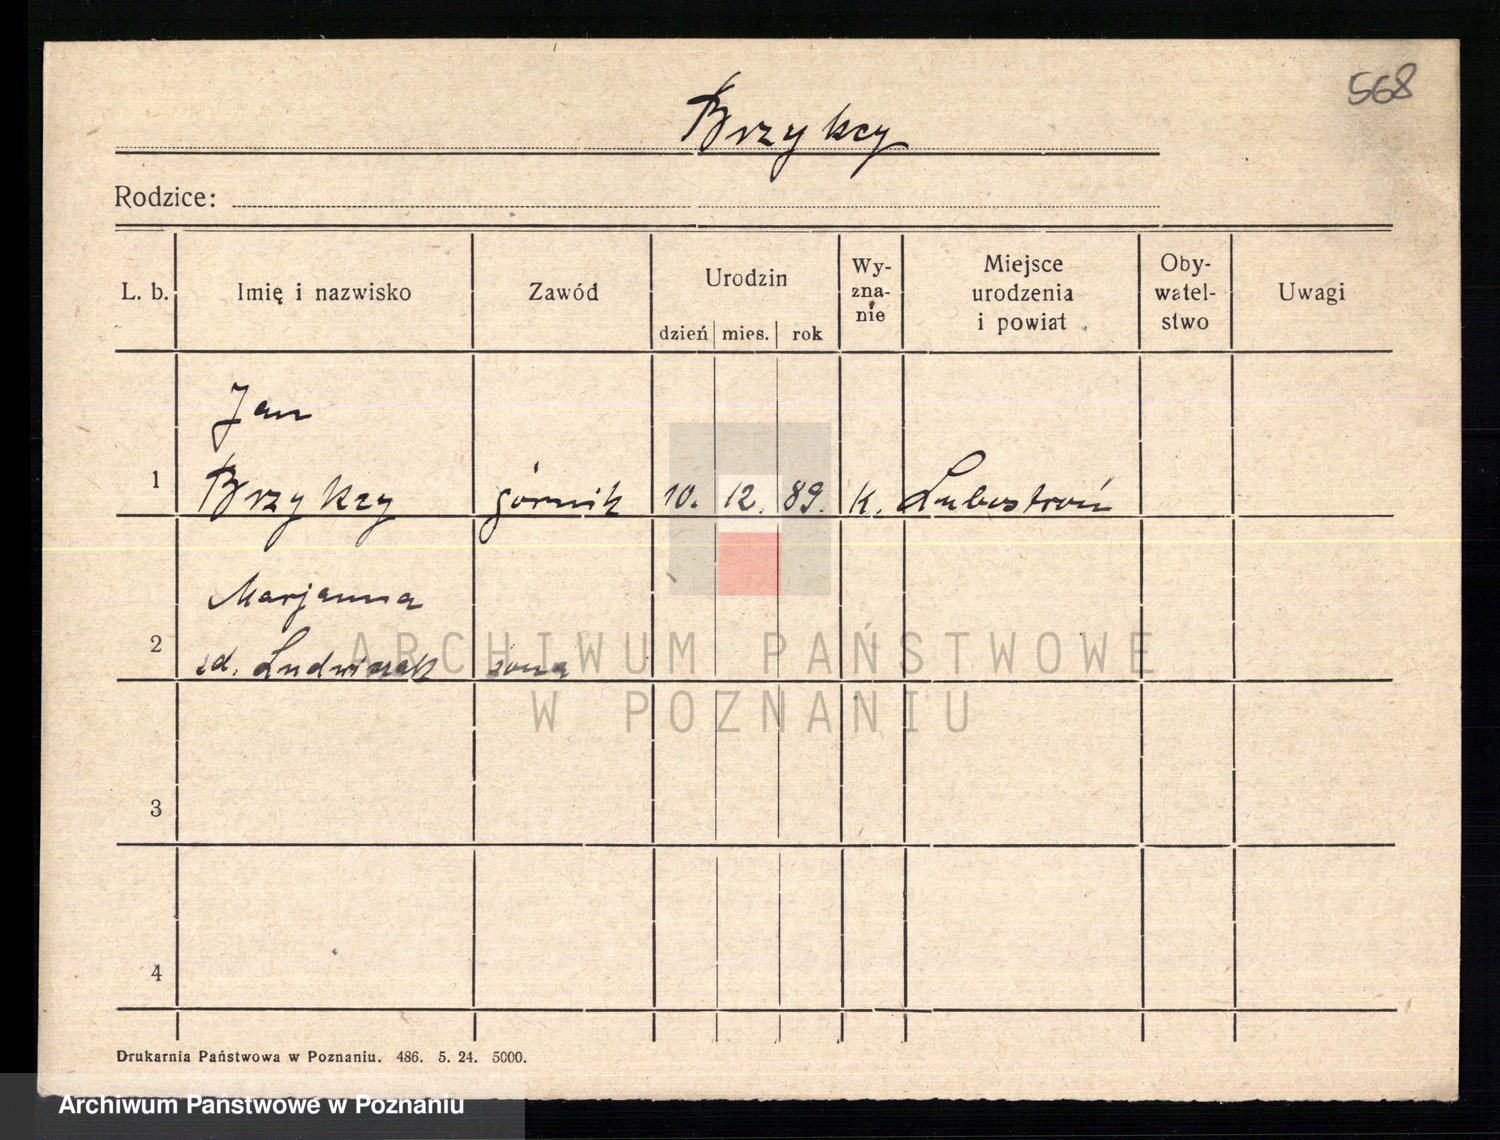 568
Brzykcy
Rodzice:
L. b.
Imię i nazwisko
Zawód
Urodzin
dzień mies. rok
Wy-
zna-
nie
Miejsce
urodzenia
i powiat
Oby-
watel-
stwo
Uwagi
Jan
1 Brzykcy górnik 10. 12. 89. k. Lubostroń
Marjanna
2 zd. Ludwiczak żona
3
4
ARCHIWUM PAŃSTWOWE
W POZNANIU
Drukarnia Państwowa w Poznaniu. 486. 5. 24. 5000.
Archiwum Państwowe w Poznaniu